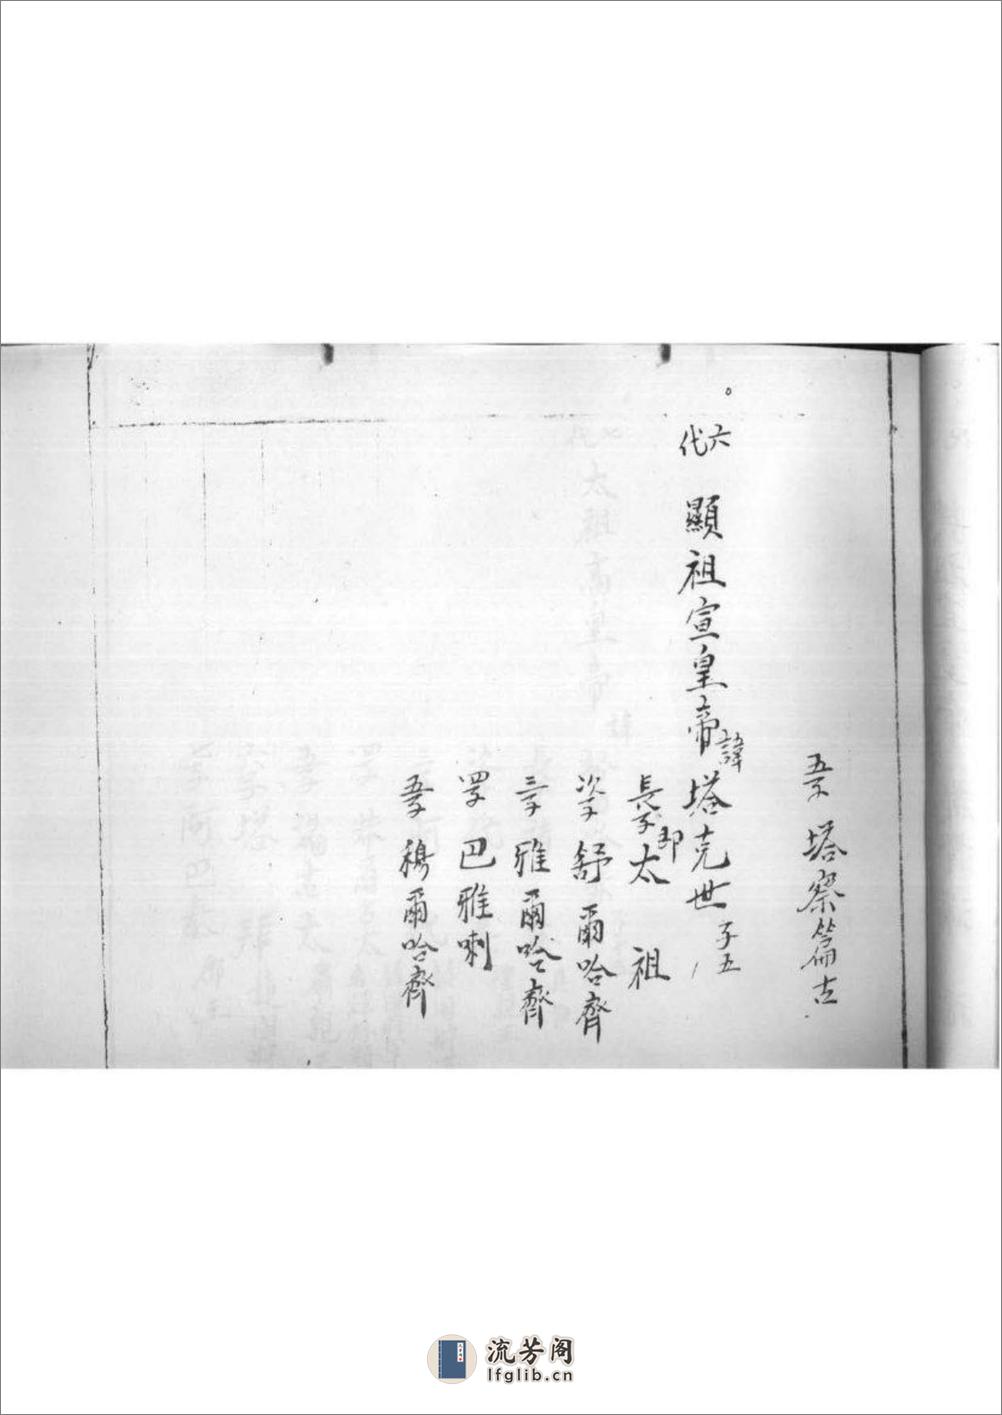 五子 塔察篇古
六代 顯祖宣皇帝 諱塔克世 子五
長子即太祖
次子 舒爾哈齊
三子 雅爾哈齊
四子 巴雅喇
五子 穆爾哈齊
流芳阁
lfglib.cn